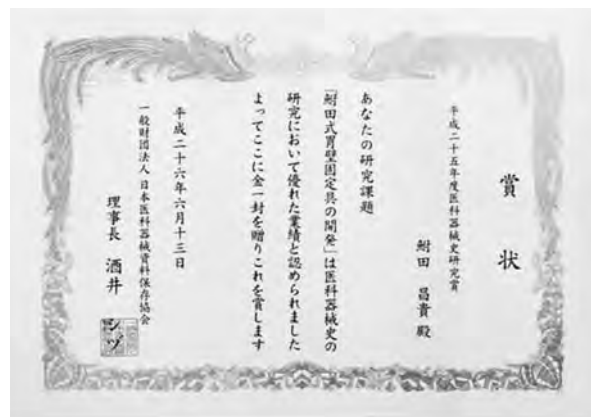 賞状
平成二十五年度医科器械史研究賞
鮒田 昌貴 殿
あなたの研究課題
「鮒田式胃壁固定具の開発」は医科器械史の
研究において優れた業績と認められました
よってここに金一封を贈りこれを賞します
平成二十六年六月十三日
一般財団法人 日本医科器械資料保存協会
理事長 酒井 シヅ